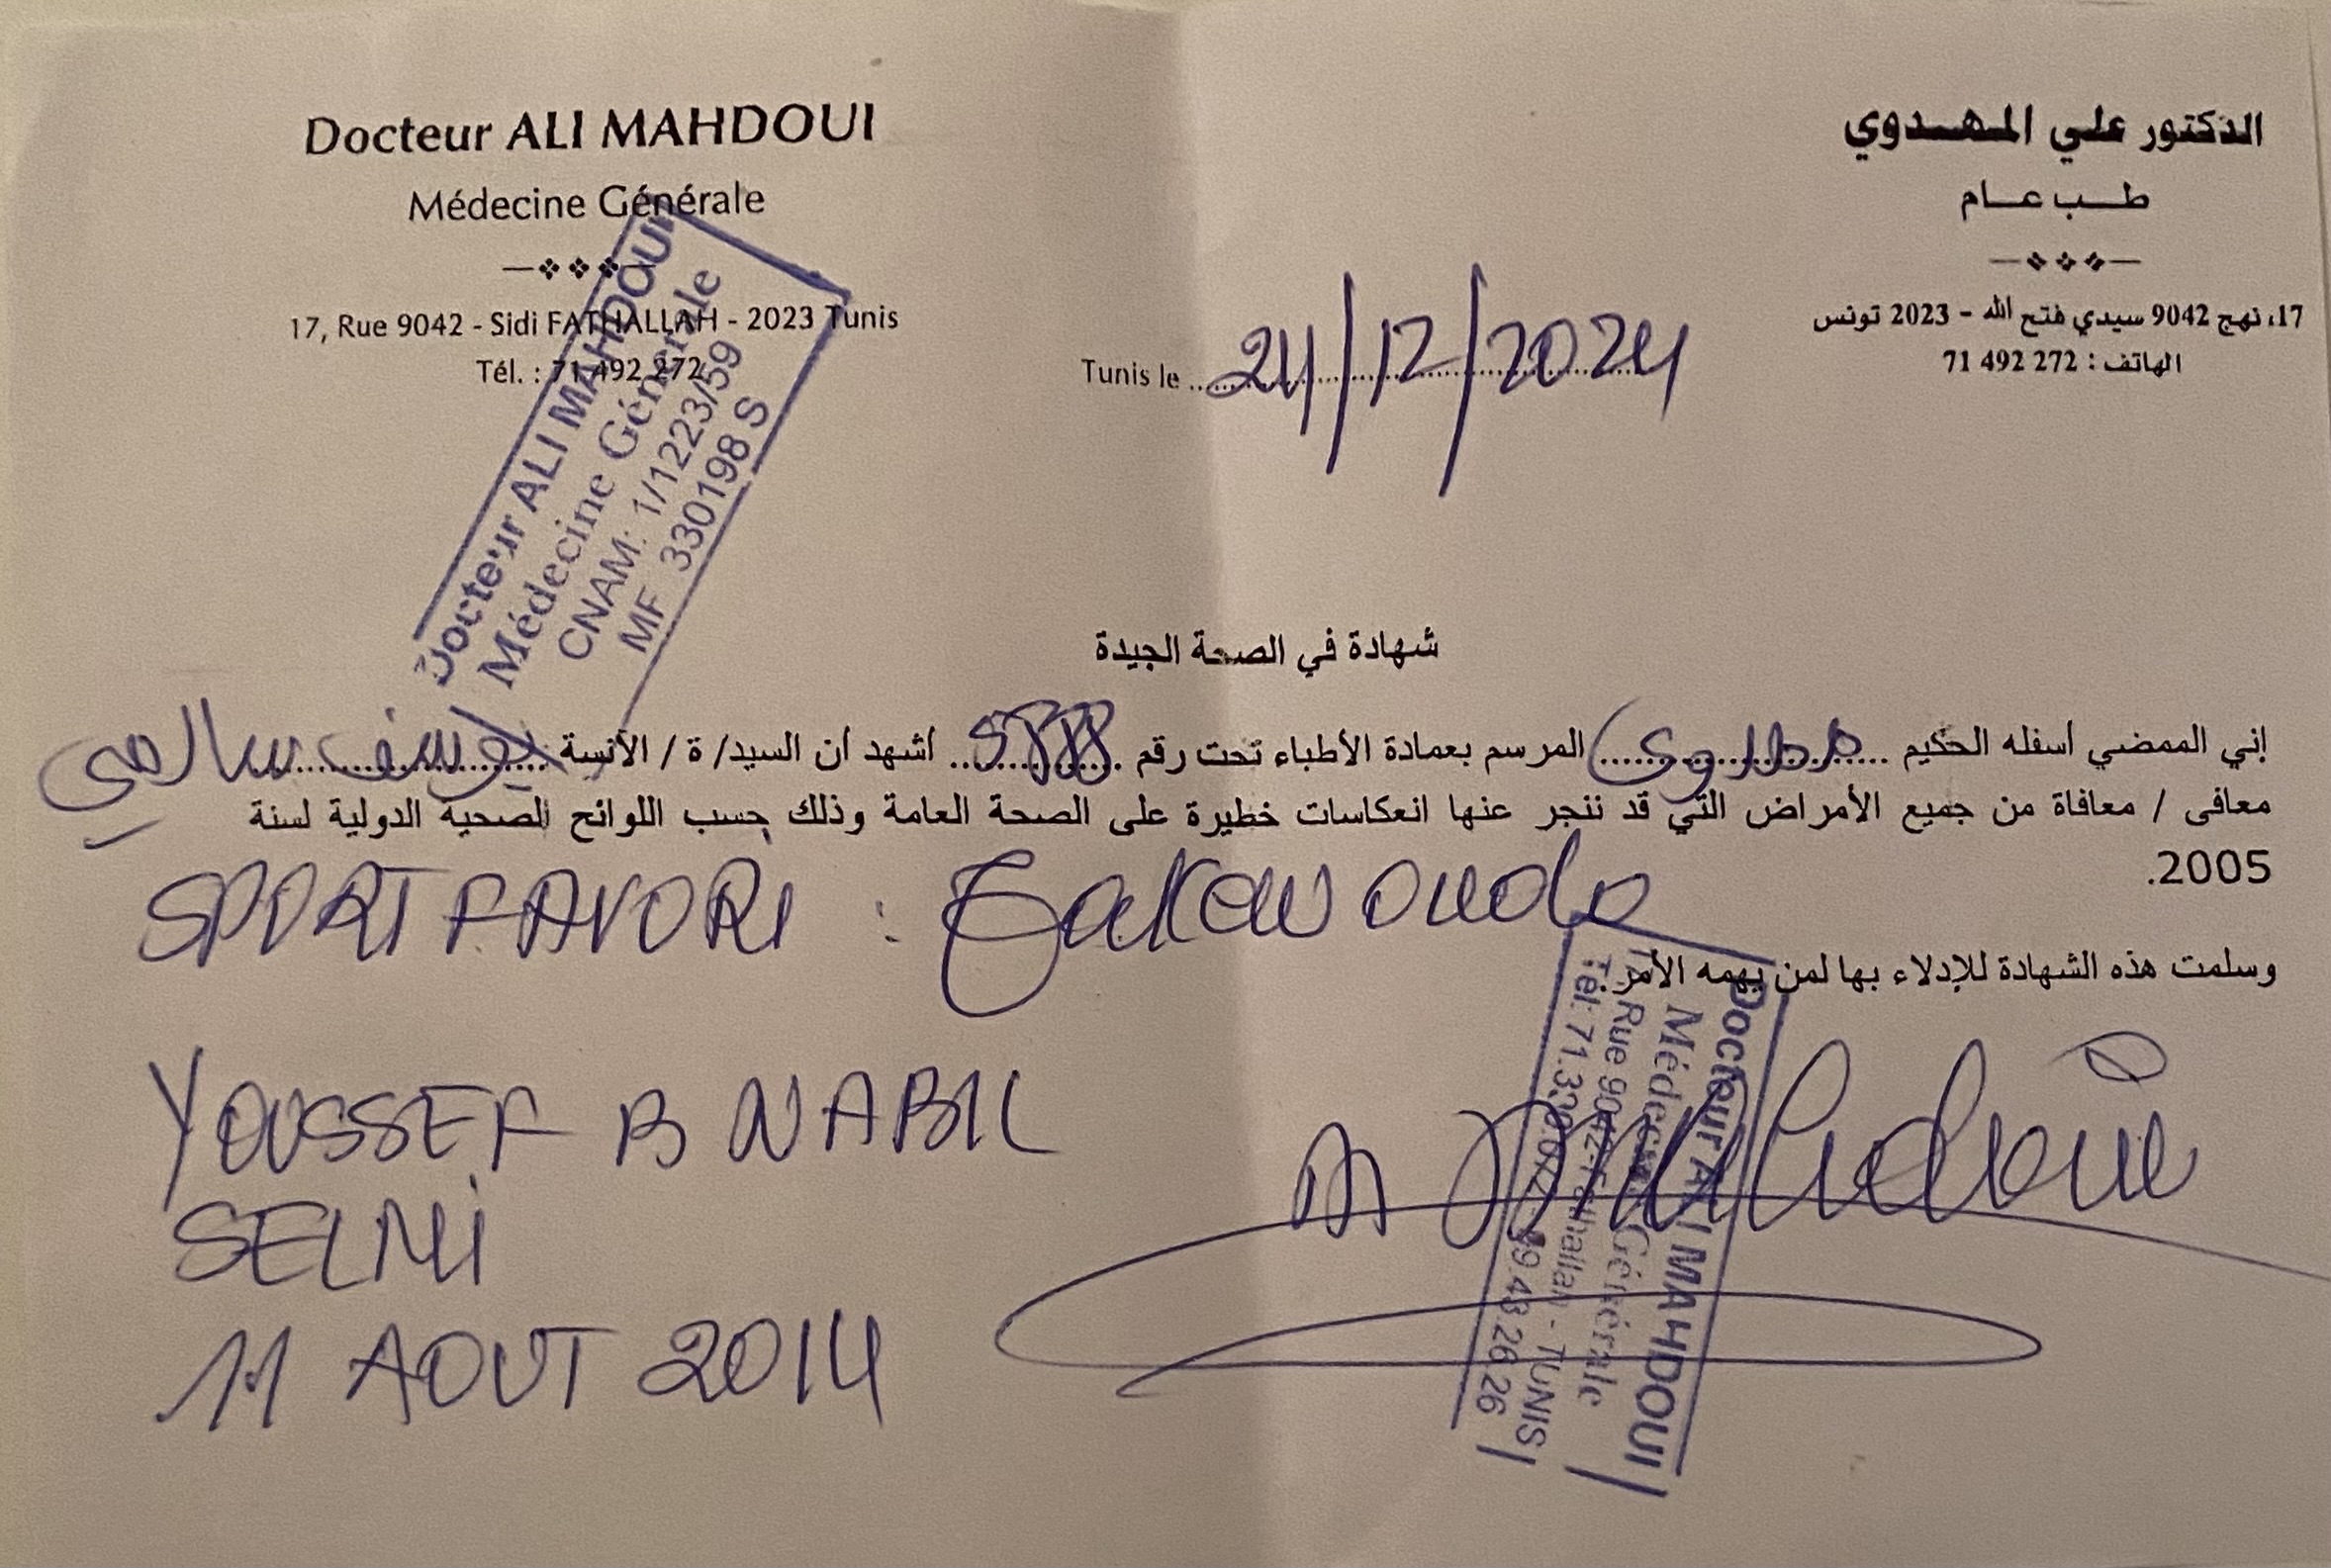 Docteur ALI MAHDOUI
Médecine Générale
17, Rue 9042 - Sidi FATHALLAH - 2023 Tunis
Tél. : 71 492 272
الدكتور علي المهدوي
طب عام
17، نهج 9042 سيدي فتح الله - 2023 تونس
الهاتف : 272 492 71
Docteur ALI MAHDOUI
Médecine Générale
CNAM: 1/1223/59
MF 330198 S
Tunis le 24/12/2024
شهادة في الصحة الجيدة
إني الممضي أسفله الحكيم المرسم بعمادة الأطباء تحت رقم أشهد أن السيد/ ة / الآنسة يوسف سالمي
معافى / معافاة من جميع الأمراض التي قد تنجر عنها انعكاسات خطيرة على الصحة العامة وذلك حسب اللوائح الصحية الدولية لسنة
2005.
SPORT FAVORI :
وسلمت هذه الشهادة للإدلاء بها لمن يهمه الأمر.
YOUSSEF B NABIL
SELMI
11 AOUT 2014
Docteur ALI MAHDOUI
Médecine Générale
Rue 9042-Fathallah - TUNIS
Tél: 71.3